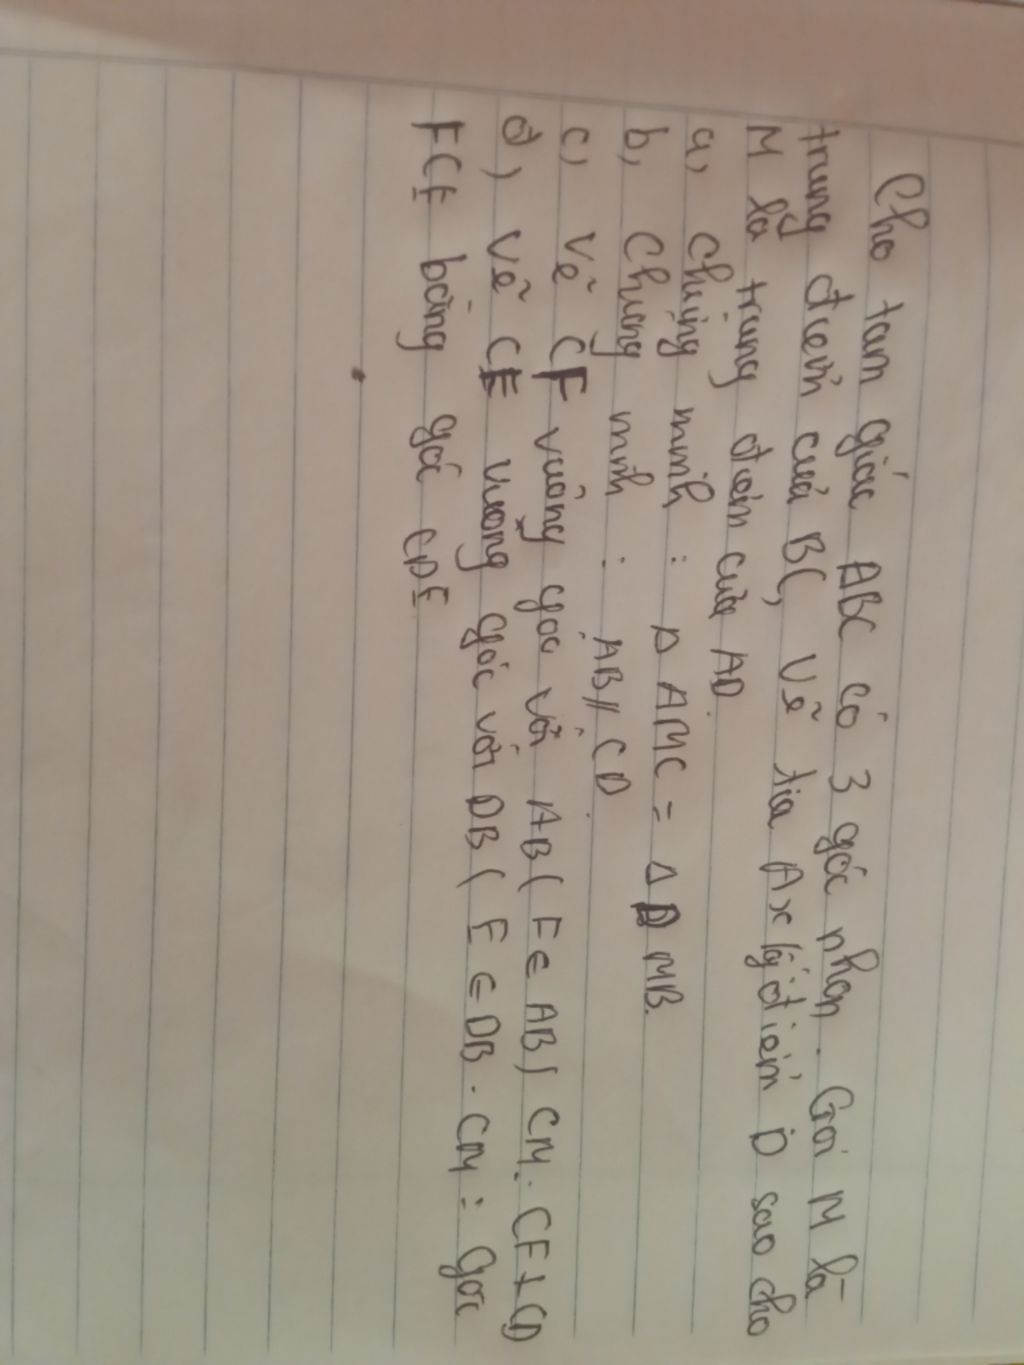 Cho tam giác ABC có 3 góc nhọn. Gọi M là
trung điểm của BC, vẽ tia Ax lấy điểm D sao cho
M là trung điểm của AD.
a, Chứng minh : Δ AMC = Δ DMB.
b, Chứng minh : AB // CD.
c, Vẽ CF vuông góc với AB ( F ∈ AB) CM: CF ⊥ CD
đ, vẽ CE vuông góc với DB ( E ∈ DB . CM : góc
FCE bằng góc CDE